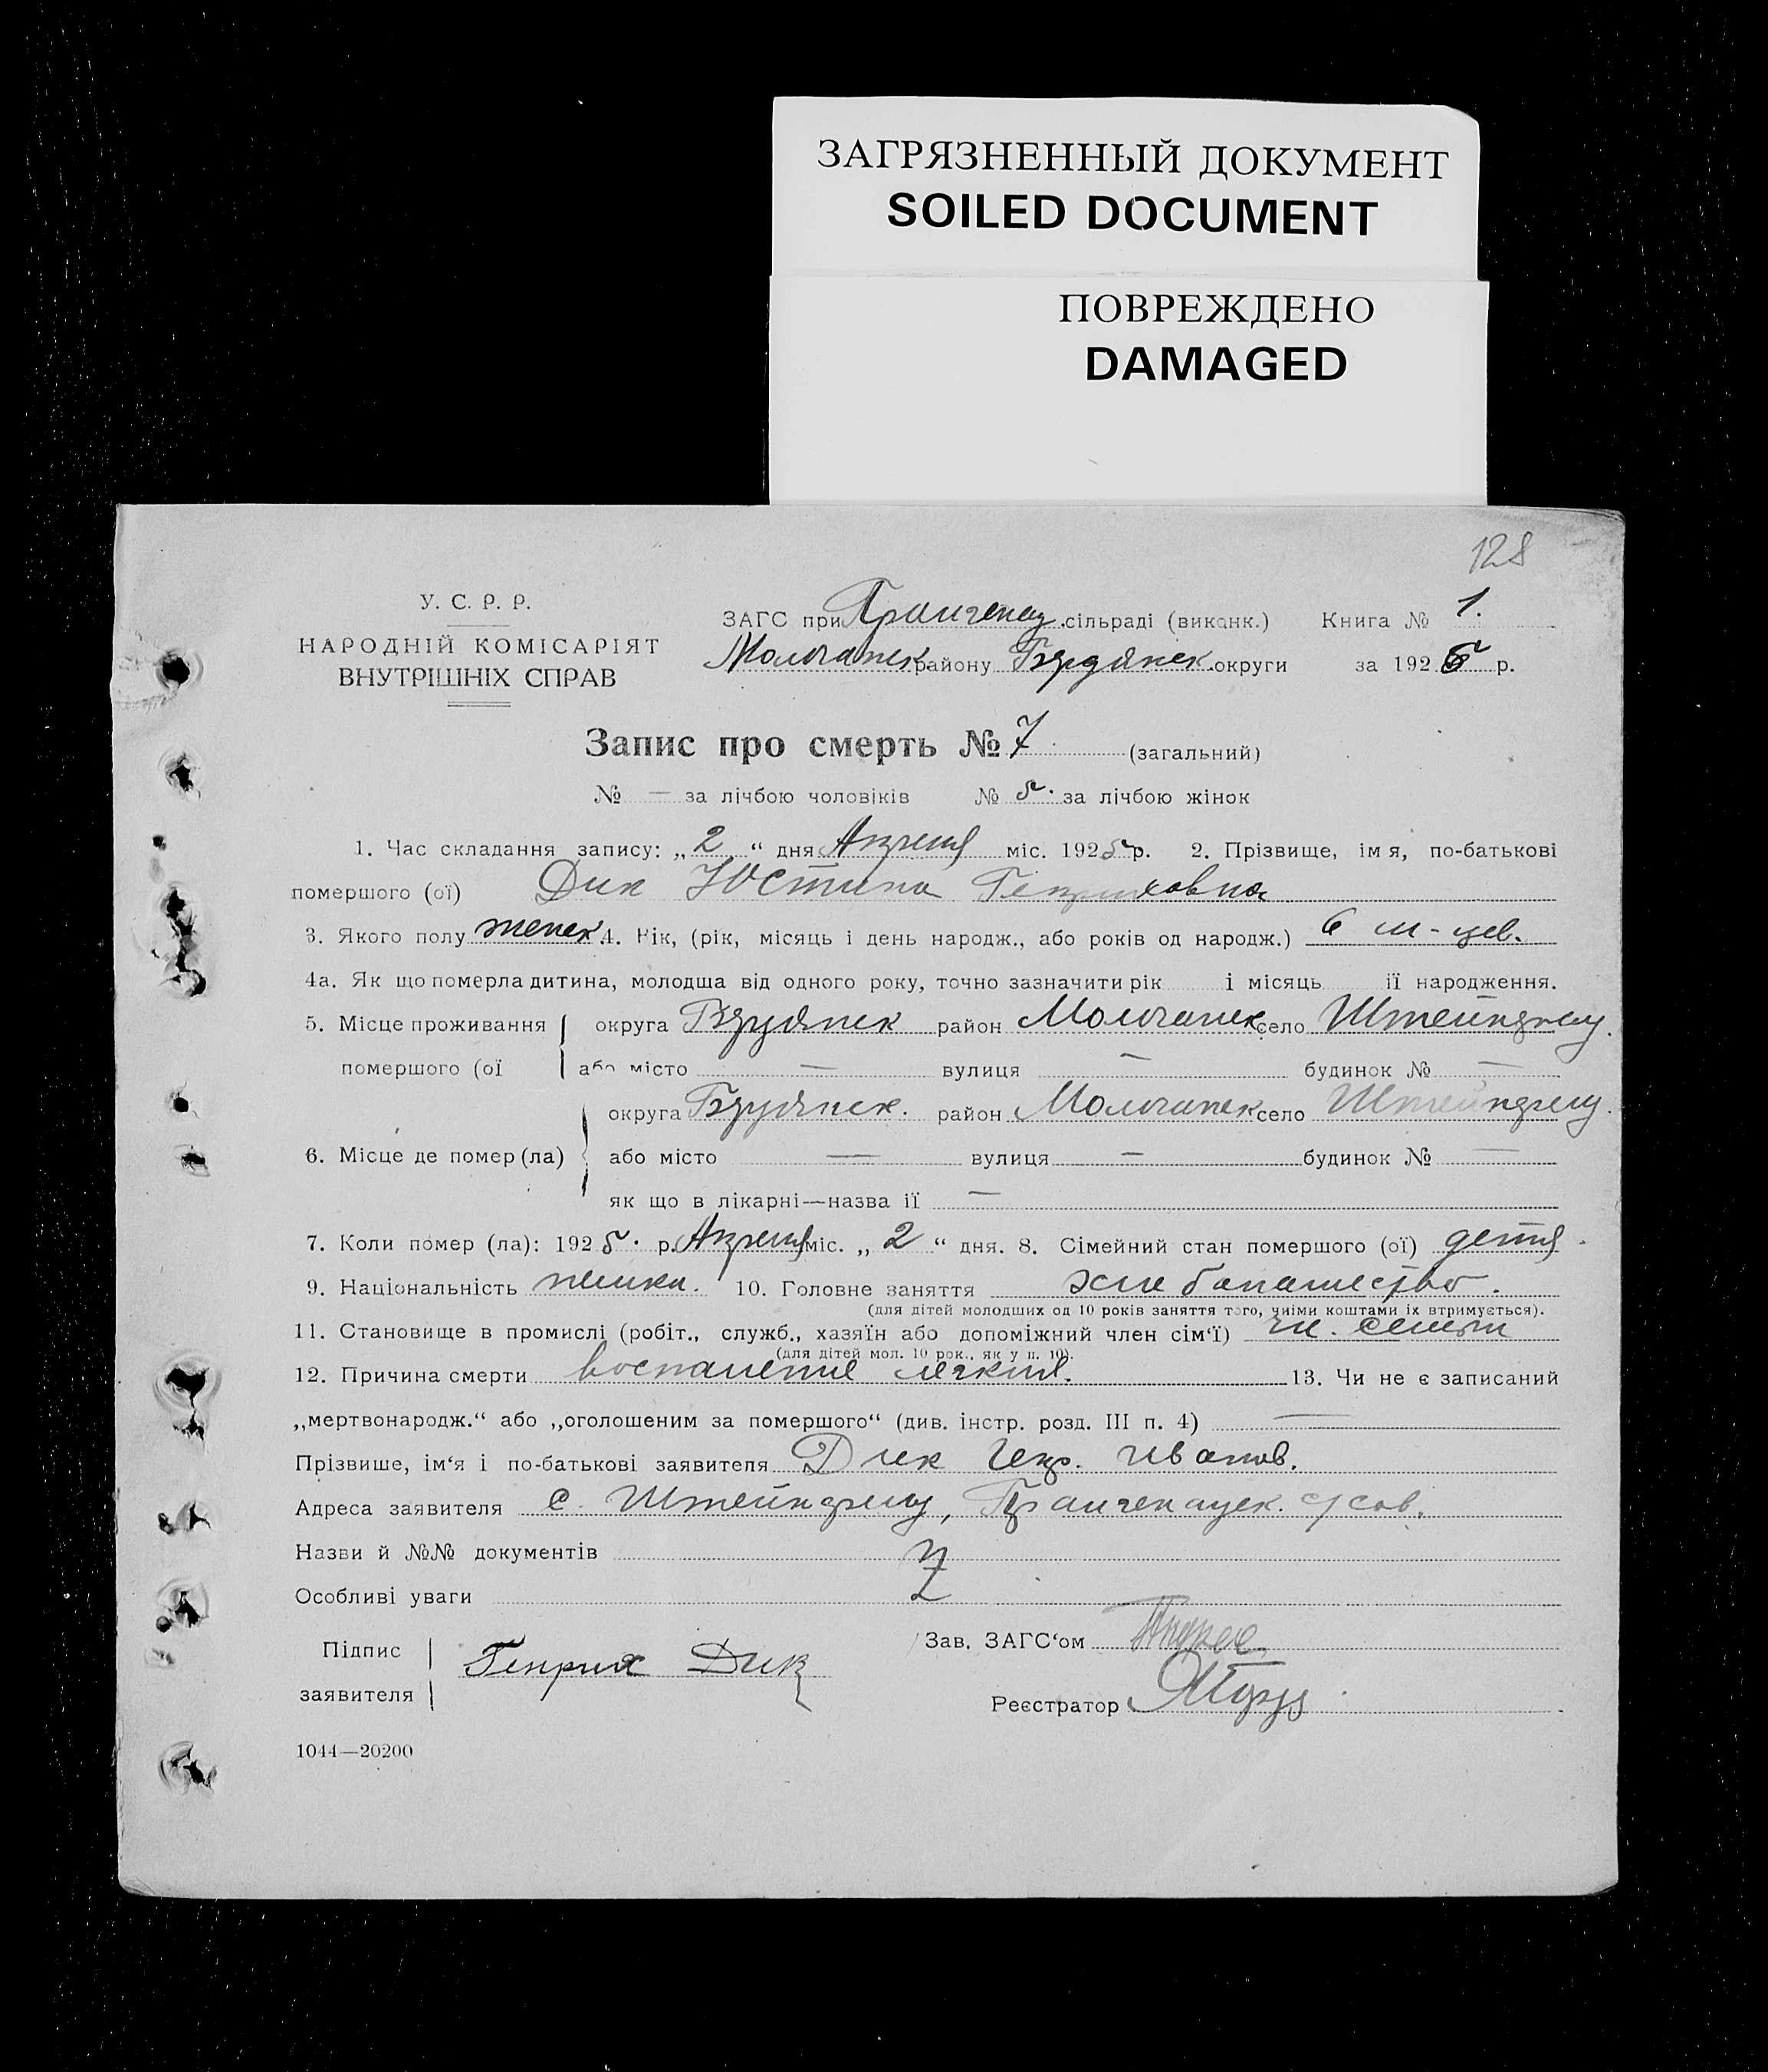 ЗАГРЯЗНЕННЫЙ ДОКУМЕНТ
SOILED DOCUMENT
ПОВРЕЖДЕНО
DAMAGED
128
У. С. Р. Р.
НАРОДНІЙ КОМІСАРІЯТ
ВНУТРІШНІХ СПРАВ
ЗАГС при сільраді (виконк.) Книга № 1.
Молочанск району Бердянск. округи за 1925 р.
Запис про смерть № 7 (загальний)
№ — за лічбою чоловіків № 5. за лічбою жінок
1. Час складання запису: „2" дня Апреля міс. 1925 р. 2. Прізвище, ім я, по-батькові
помершого (ої) Дик Юстина Генриховна
3. Якого полу женск. 4. Рік, (рік, місяць і день народж., або років од народж.) 6 м-цев.
4а. Як що померла дитина, молодша від одного року, точно зазначити рік і місяць її народження.
5. Місце проживання округа Бердянск район Молочанск село Штейнфельд.
помершого (ої або місто — вулиця — будинок № —
округа Бердянск. район Молочанск село Штейнфельд.
6. Місце де помер (ла) або місто — вулиця — будинок № —
як що в лікарні—назва її —
7. Коли помер (ла): 1925. р. Апреля міс. „2" дня. 8. Сімейний стан помершого (ої) дитя.
9. Національність немка. 10. Головне заняття хлебопашество.
(для дітей молодших од 10 років заняття того, чиїми коштами їх втримується).
11. Становище в промислі (робіт., служб., хазяїн або допоміжний член сім'ї) чл. семьи
(для дітей мол. 10 рок., як у п. 10).
12. Причина смерти воспаление легких. 13. Чи не є записаний
„мертвонародж." або „оголошеним за помершого" (див. інстр. розд. III п. 4) —
Прізвише, ім'я і по-батькові заявителя Дик Генр. Иванов.
Адреса заявителя с. Штейнфельд, с/сов.
Назви й №№ документів
Особливі уваги
Підпис Зав. ЗАГС'ом
заявителя Генрих Дик
Реєстратор
1044—20200